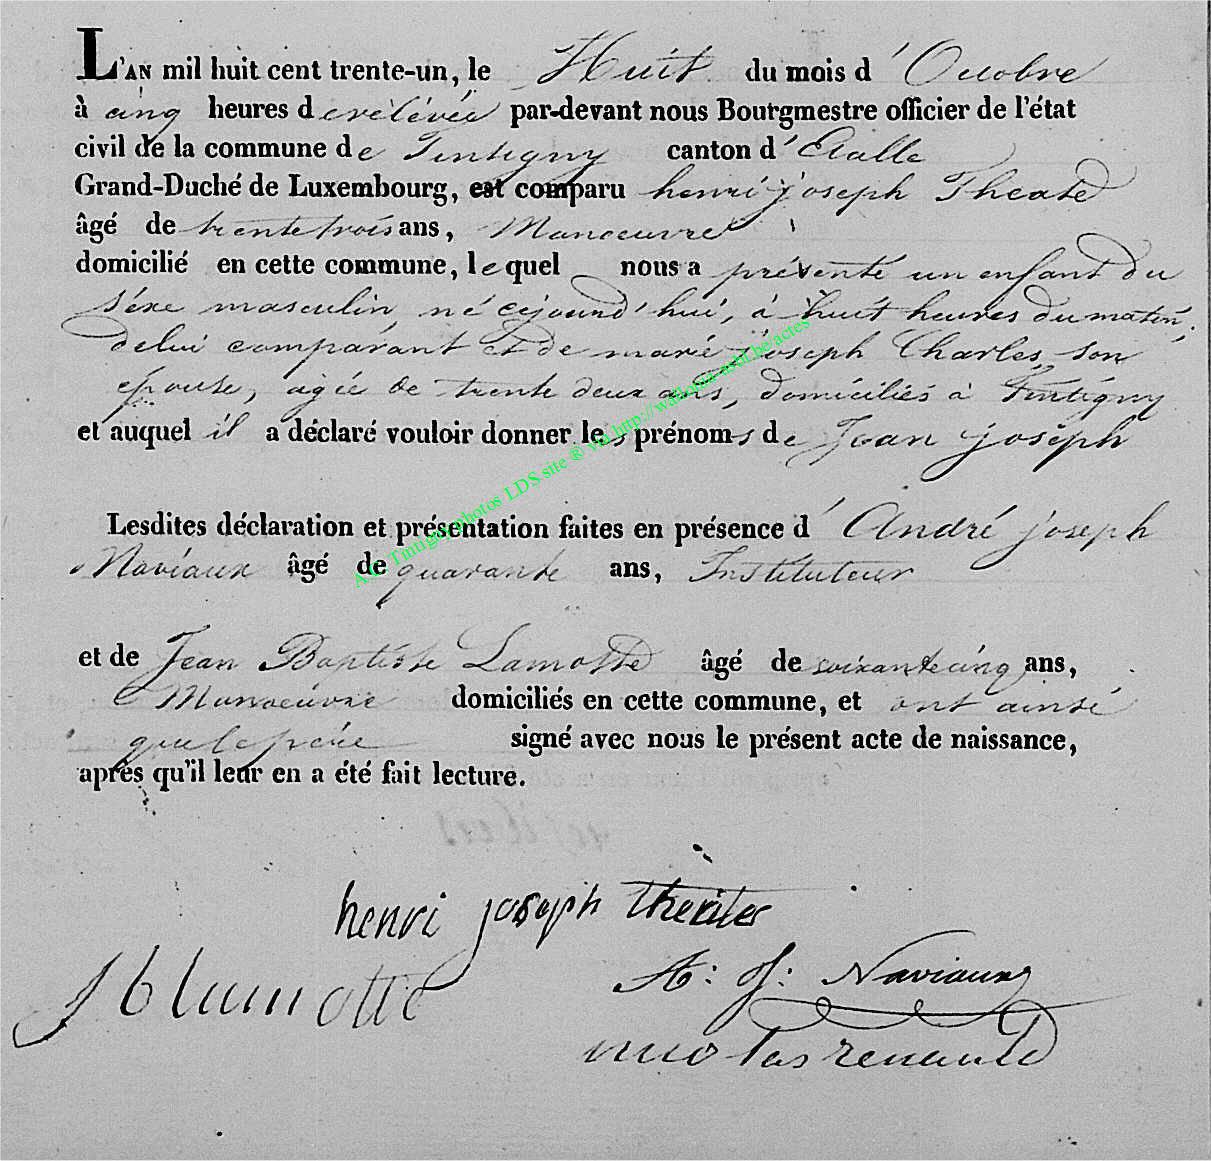 L'AN mil huit cent trente-un, le Huit du mois d' Octobre
à cinq heures de relévée par-devant nous Bourgmestre officier de l'état
civil de la commune de Tintigny canton d' Etalle
Grand-Duché de Luxembourg, est comparu henri joseph
âgé de trente trois ans, Manoeuvre
domicilié en cette commune, lequel nous a présenté un enfant du
séxe masculin, né cejourd'hui, à huit heures du matin,
de lui comparant et de marie joseph Charles, son
epouse, agée de trente deux ans, domiciliés à Tintigny
et auquel il a déclaré vouloir donner les prénoms de Jean joseph
Lesdites déclaration et présentation faites en présence d' André joseph
Naviaux âgé de quarante ans, Instituteur
et de Jean Baptiste Lamotte âgé de soixante cinq ans,
Manoeuvre domiciliés en cette commune, et ont ainsi
que le père signé avec nous le présent acte de naissance,
après qu'il leur en a été fait lecture.
henri joseph
A: J: Naviaux
J b lamotte
nicolas renauld
Tintigny photos LDS site ® via http://wallonia-asbl.be/actes